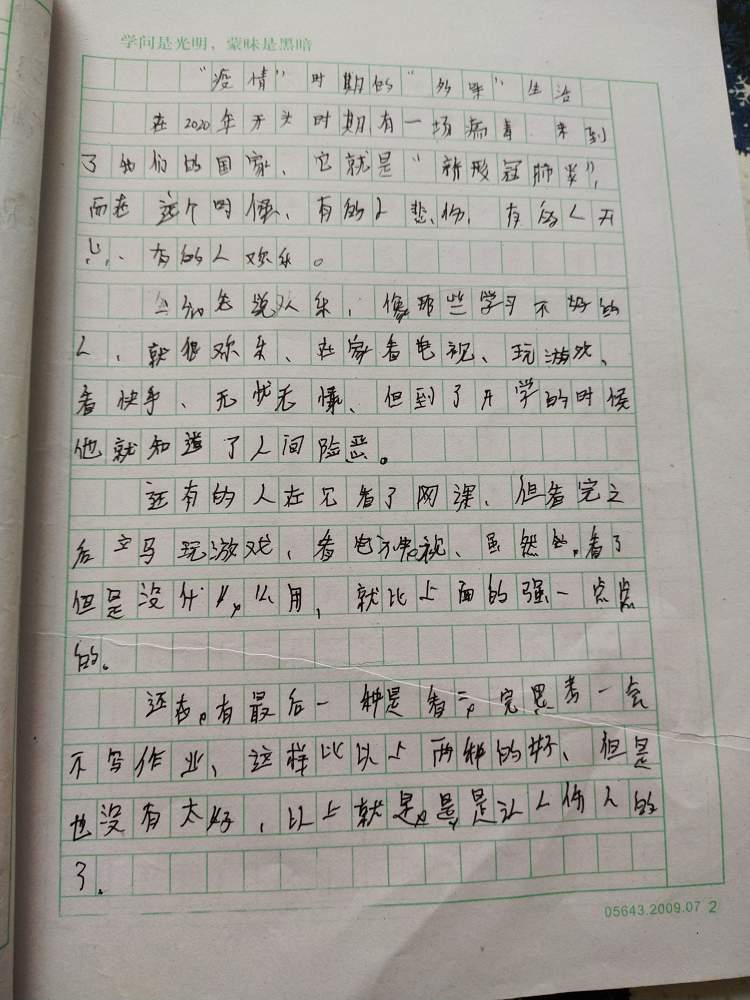 学问是光明，蒙昧是黑暗
"疫情"时期的"别样"生活
在2020年开头时期有一场病毒来到
了我们的国家、它就是"新形冠肺炎"，
而在这个时候、有的人悲伤，有的人开
心、有的人欢乐。
先说欢乐，像那些学习不好的
人、就很欢乐、在家看电视、玩游戏、
看快手、无忧无虑、但到了开学的时候
他就知道了人间险恶。
还有的人在家看了网课、但看完之
后立马玩游戏、看电视、虽然看了
但是没什么用，就比上面的强一点点
的。
还有最后一种是看完思考一会
不写作业、这样比以上两种的好、但是
也没有太好，以上就是是让人伤人的
了。
05643.2009.07 2